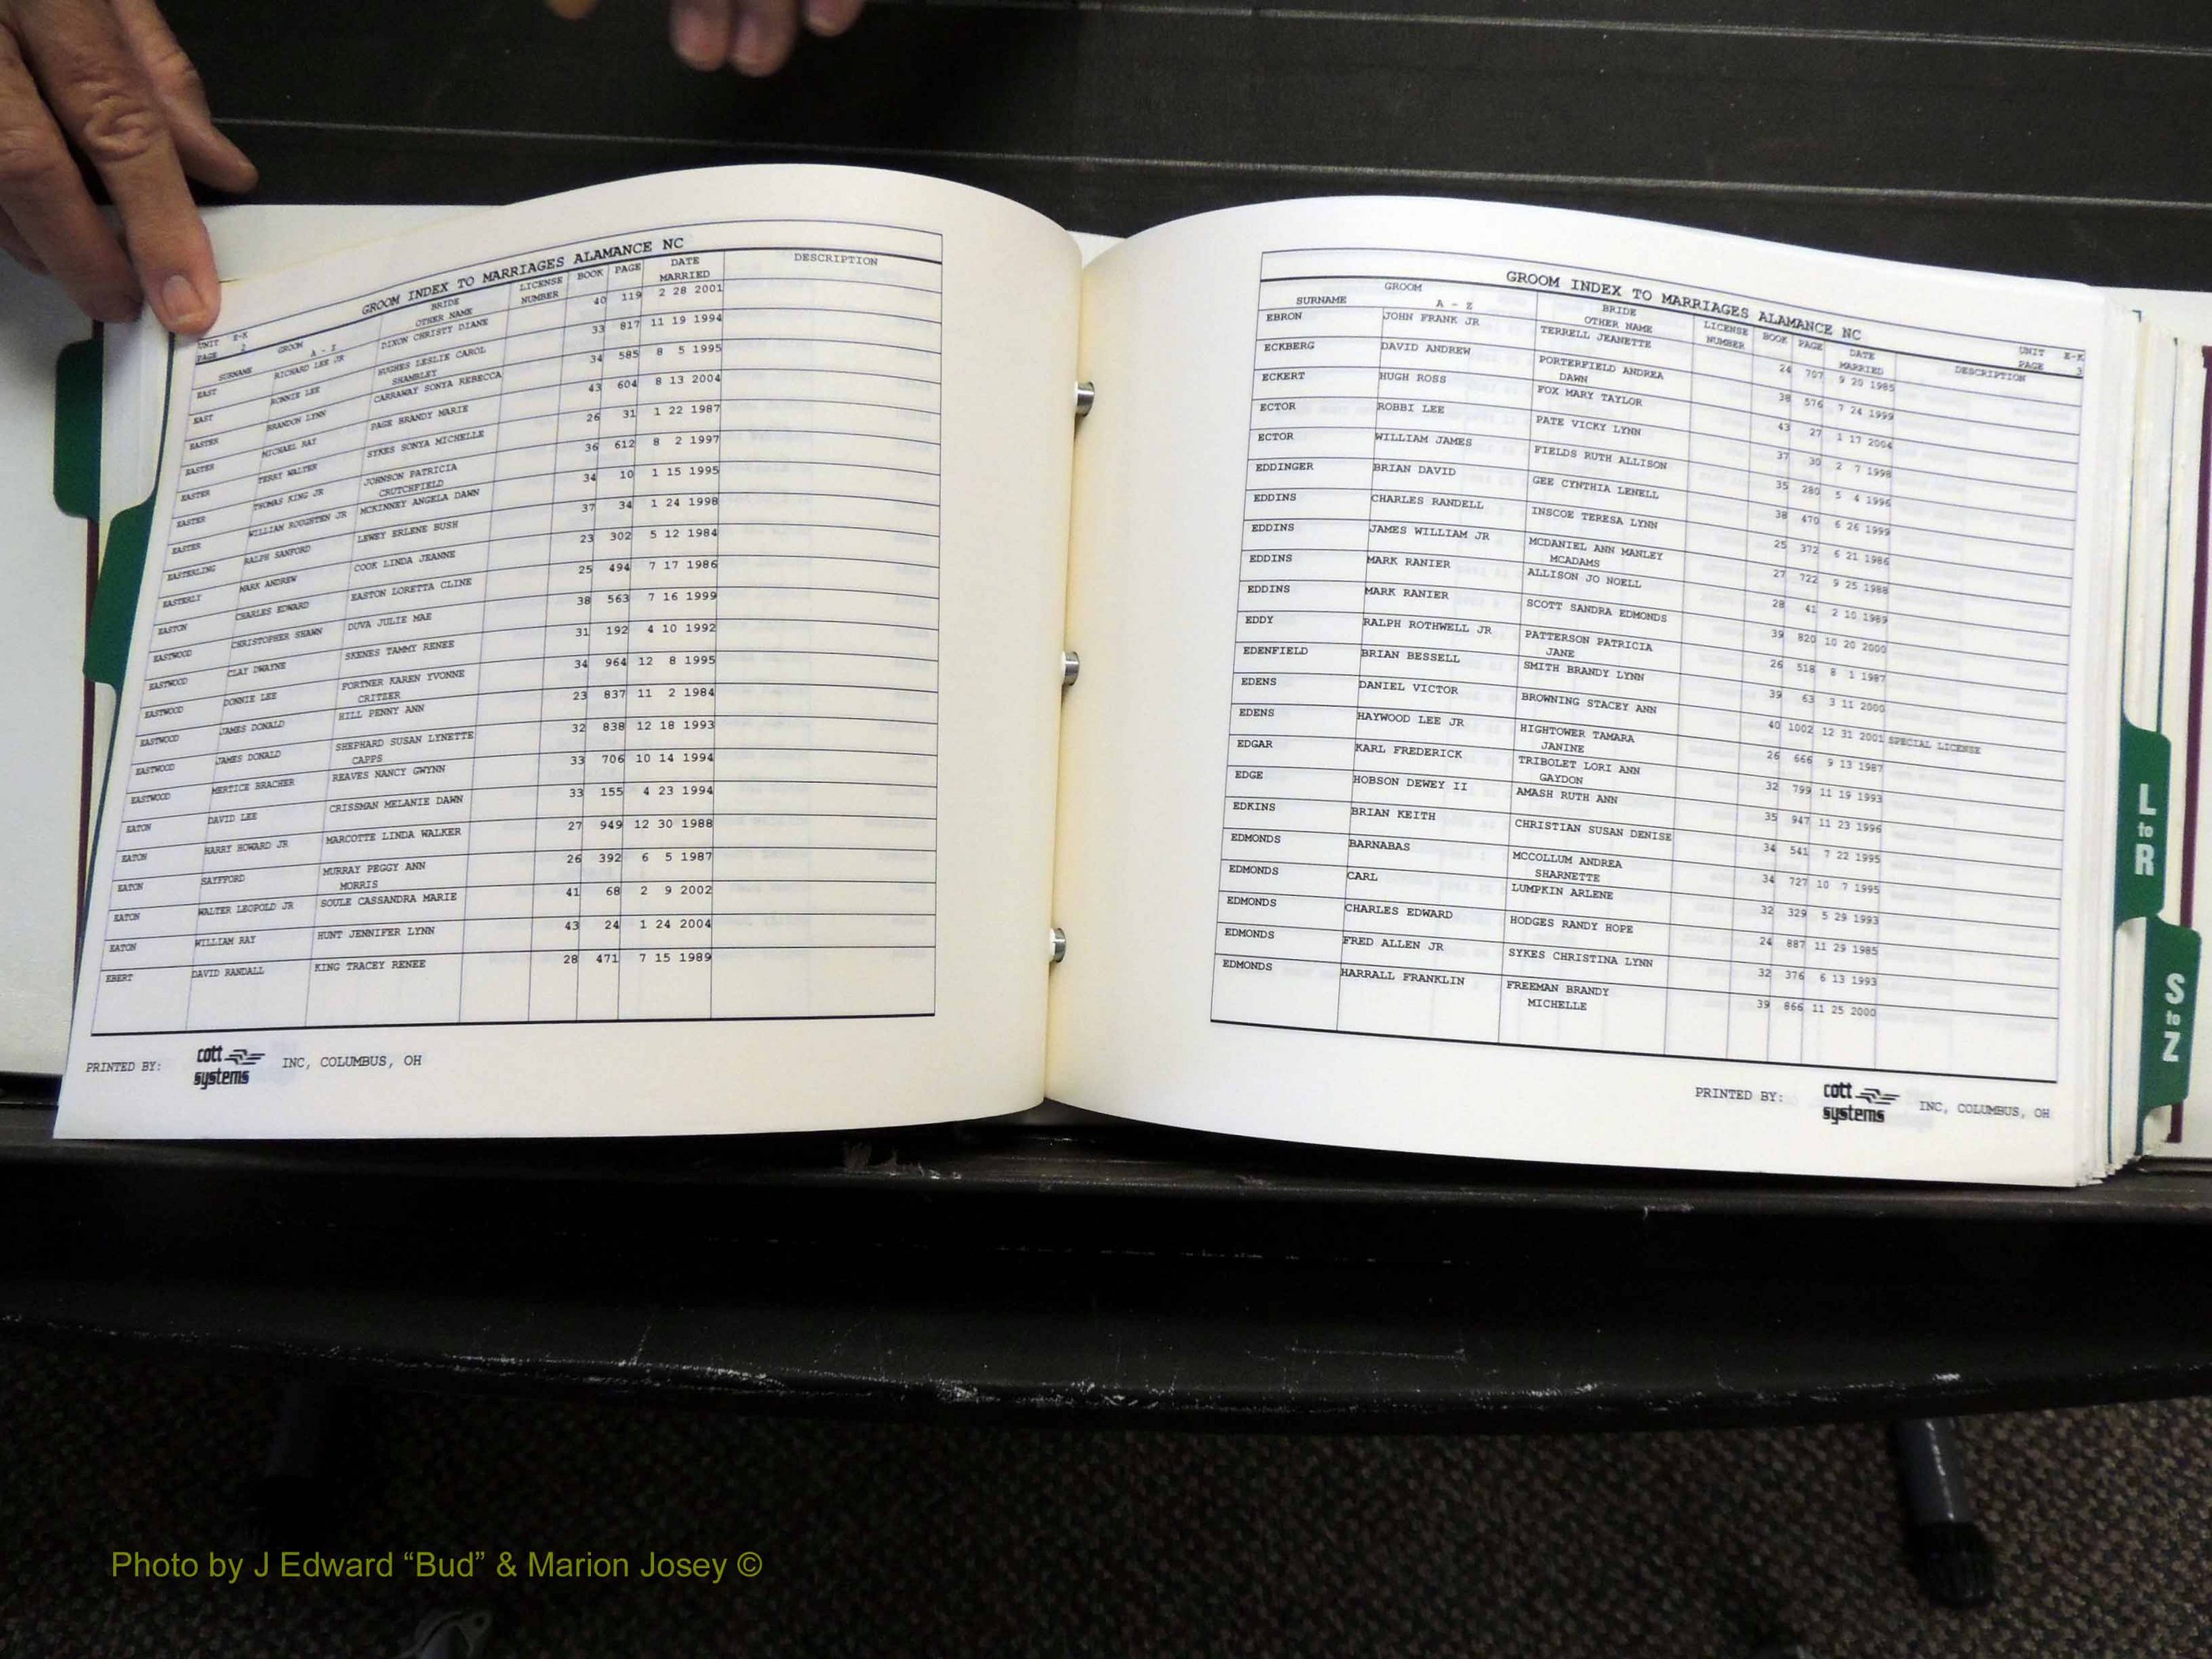 GROOM INDEX TO MARRIAGES ALAMANCE NC
UNIT E-K
PAGE 2
SURNAME GROOM A - Z BRIDE OTHER NAME LICENSE NUMBER BOOK PAGE DATE MARRIED DESCRIPTION
EAST RICHARD LEE JR DIXON CHRISTY DIANE 40 119 2 28 2001
EAST RONNIE LEE HUGHES LESLIE CAROL 33 817 11 19 1994
SHAMBLEY
EASTER BRANDON LYNN CARRAWAY SONYA REBECCA 34 585 8 5 1995
EASTER MICHAEL RAY PAGE BRANDY MARIE 43 604 8 13 2004
EASTER TERRY WALTER SYKES SONYA MICHELLE 26 31 1 22 1987
EASTER THOMAS KING JR JOHNSON PATRICIA 36 612 8 2 1997
CRUTCHFIELD
EASTER WILLIAM ROUGHTEN JR MCKINNEY ANGELA DAWN 34 10 1 15 1995
EASTERLING RALPH SANFORD LEWEY ERLENE BUSH 37 34 1 24 1998
EASTERLY MARK ANDREW COOK LINDA JEANNE 23 302 5 12 1984
EASTON CHARLES EDWARD EASTON LORETTA CLINE 25 494 7 17 1986
EASTWOOD CHRISTOPHER SHAWN DUVA JULIE MAE 38 563 7 16 1999
EASTWOOD CLAY DWAYNE SKENES TAMMY RENEE 31 192 4 10 1992
EASTWOOD DONNIE LEE FORTNER KAREN YVONNE 34 964 12 8 1995
CRITZER
EASTWOOD JAMES DONALD HILL PENNY ANN 23 837 11 2 1984
EASTWOOD JAMES DONALD SHEPHARD SUSAN LYNETTE 32 838 12 18 1993
CAPPS
EASTWOOD MERTICE BRACHER REAVES NANCY GWYNN 33 706 10 14 1994
EATON DAVID LEE CRISSMAN MELANIE DAWN 33 155 4 23 1994
EATON HARRY HOWARD JR MARCOTTE LINDA WALKER 27 949 12 30 1988
EATON SAYFFORD MURRAY PEGGY ANN 26 392 6 5 1987
MORRIS
EATON WALTER LEOPOLD JR SOULE CASSANDRA MARIE 41 68 2 9 2002
EATON WILLIAM RAY HUNT JENNIFER LYNN 43 24 1 24 2004
EBERT DAVID RANDALL KING TRACEY RENEE 28 471 7 15 1989
PRINTED BY: cott systems INC, COLUMBUS, OH
GROOM INDEX TO MARRIAGES ALAMANCE NC
UNIT E-K
PAGE 3
SURNAME GROOM A - Z BRIDE OTHER NAME LICENSE NUMBER BOOK PAGE DATE MARRIED DESCRIPTION
EBRON JOHN FRANK JR TERRELL JEANETTE 24 707 9 20 1985
ECKBERG DAVID ANDREW PORTERFIELD ANDREA 38 576 7 24 1999
DAWN
ECKERT HUGH ROSS FOX MARY TAYLOR 43 27 1 17 2004
ECTOR ROBBI LEE PATE VICKY LYNN 37 30 2 7 1998
ECTOR WILLIAM JAMES FIELDS RUTH ALLISON 35 280 5 4 1996
EDDINGER BRIAN DAVID GEE CYNTHIA LENELL 38 470 6 26 1999
EDDINS CHARLES RANDELL INSCOE TERESA LYNN 25 372 6 21 1986
EDDINS JAMES WILLIAM JR MCDANIEL ANN MANLEY 27 722 9 25 1988
MCADAMS
EDDINS MARK RANIER ALLISON JO NOELL 28 41 2 10 1989
EDDINS MARK RANIER SCOTT SANDRA EDMONDS 39 820 10 20 2000
EDDY RALPH ROTHWELL JR PATTERSON PATRICIA 26 518 8 1 1987
JANE
EDENFIELD BRIAN BESSELL SMITH BRANDY LYNN 39 63 3 11 2000
EDENS DANIEL VICTOR BROWNING STACEY ANN 40 1002 12 31 2001 SPECIAL LICENSE
EDENS HAYWOOD LEE JR HIGHTOWER TAMARA 26 666 9 13 1987
JANINE
EDGAR KARL FREDERICK TRIBOLET LORI ANN 32 799 11 19 1993
GAYDON
EDGE HOBSON DEWEY II AMASH RUTH ANN 35 947 11 23 1996
EDKINS BRIAN KEITH CHRISTIAN SUSAN DENISE 34 541 7 22 1995
EDMONDS BARNABAS MCCOLLUM ANDREA 34 727 10 7 1995
SHARNETTE
EDMONDS CARL LUMPKIN ARLENE 32 329 5 29 1993
EDMONDS CHARLES EDWARD HODGES RANDY HOPE 24 887 11 29 1985
EDMONDS FRED ALLEN JR SYKES CHRISTINA LYNN 32 376 6 13 1993
EDMONDS HARRALL FRANKLIN FREEMAN BRANDY 39 866 11 25 2000
MICHELLE
PRINTED BY: cott systems INC, COLUMBUS, OH
L to R
S to Z
Photo by J Edward “Bud” & Marion Josey ©